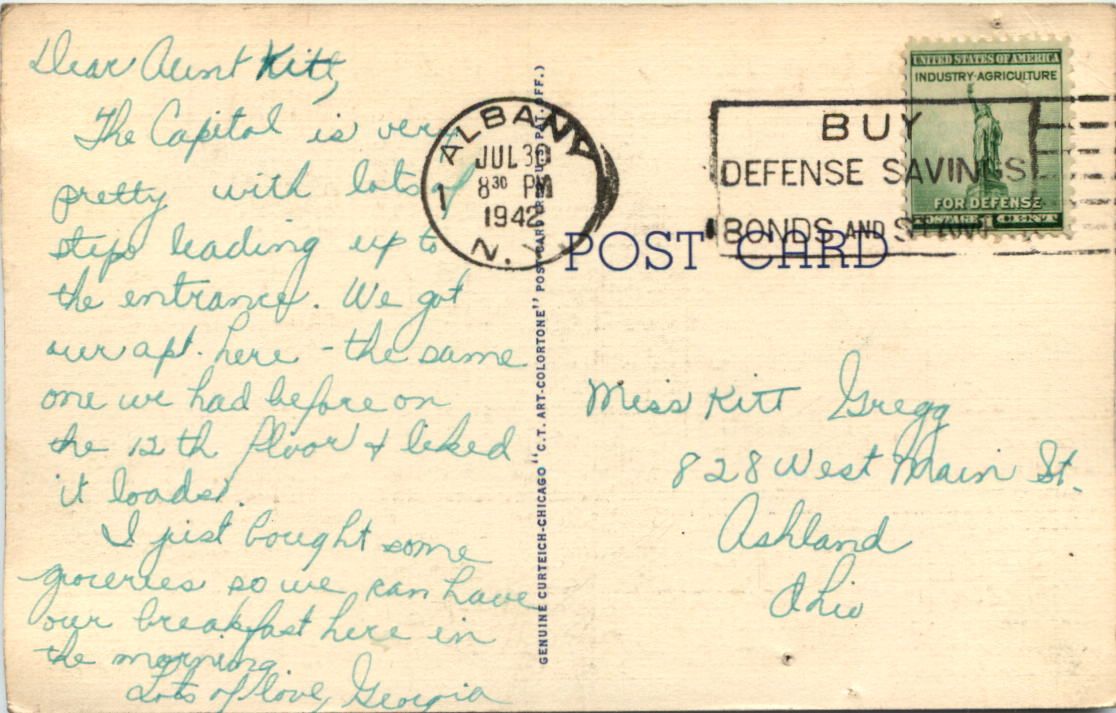 Dear Aunt Kitt,
The Capitol is very
pretty with lots of
steps leading up to
the entrance. We got
our apt. here - the same
one we had before on
the 12th floor & liked
it loads.
I just bought some
groceries so we can have
our breakfast here in
the morning.
Lots of love, Georgia
GENUINE CURTEICH-CHICAGO "C.T. ART-COLORTONE" POST CARD PAT. OFF.)
ALBANY
1
JUL 30
8 30 PM
1942
N.Y.
BUY
DEFENSE SAVINGS
BONDS AND STAMPS
UNITED STATES OF AMERICA
INDUSTRY·AGRICULTURE
FOR DEFENSE
POSTAGE 1 CENT
POST CARD
Miss Kitt Gregg
828 West Main St.
Ashland
Ohio